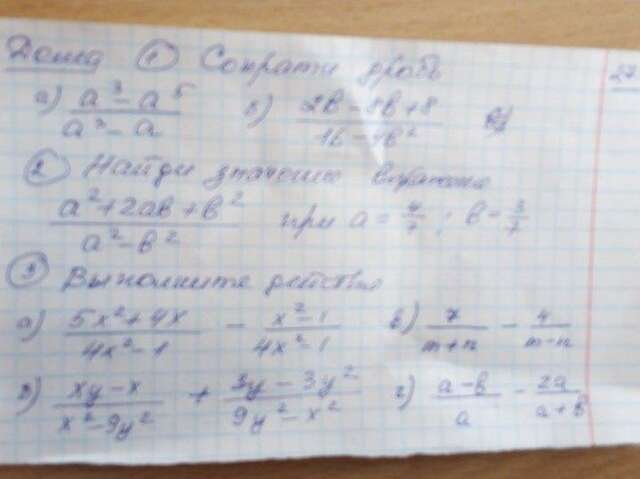 Дома ① Сократи дробь 27
а) (a³ - a⁵)/(a³ - a) б) (2b - 8b + 8)/(16 - 4b²)
② Найди значение выражения
(a² + 2ab + b²)/(a² - b²) при a = 4/7 ; b = 3/7
③ Выполните действия
а) (5x² + 4x)/(4x² - 1) - (x² - 1)/(4x² - 1) в) 7/(m+n) - 4/(m-n)
б) (xy - x)/(x² - 9y²) + (3y - 3y²)/(9y² - x²) г) (a - b)/a - 2a/(a + b)